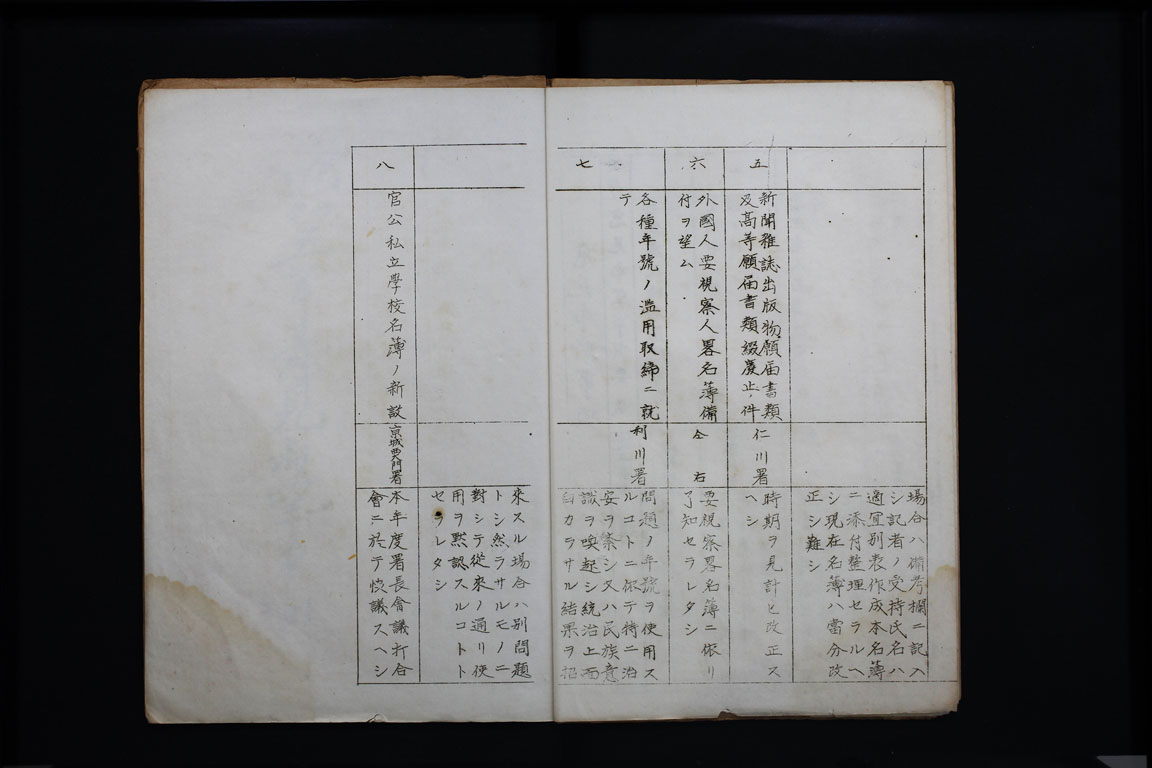 場合ハ備考欄ニ記入
シ記者ノ受持氏名ハ
適宜別表作成本名簿
ニ添付整理セラルヘ
シ現在名簿ハ當分改
正シ難シ
五
新聞雜誌出版物願届書類
及高等願届書類綴廢止ノ件
仁川署
時期ヲ見計ヒ改正ス
ヘシ
六
外國人要視察人畧名簿備
付ヲ望ム
仝右
要視察畧名簿ニ依リ
了知セラレタシ
七
各種年號ノ濫用取締ニ就
テ
利川署
問題ノ年號ヲ使用ス
ルコトニ依テ特ニ治
安ヲ紊シ又ハ民族意
識ヲ喚起シ統治上面
白カラサル結果ヲ招
來スル場合ハ別問題
トシ然ラサルモノニ
對シテ從來ノ通リ使
用ヲ黙認スルコトト
セラレタシ
八
官公私立學校名簿ノ新設
京城西大門署
本年度署長會議打合
會ニ於テ協議スヘシ